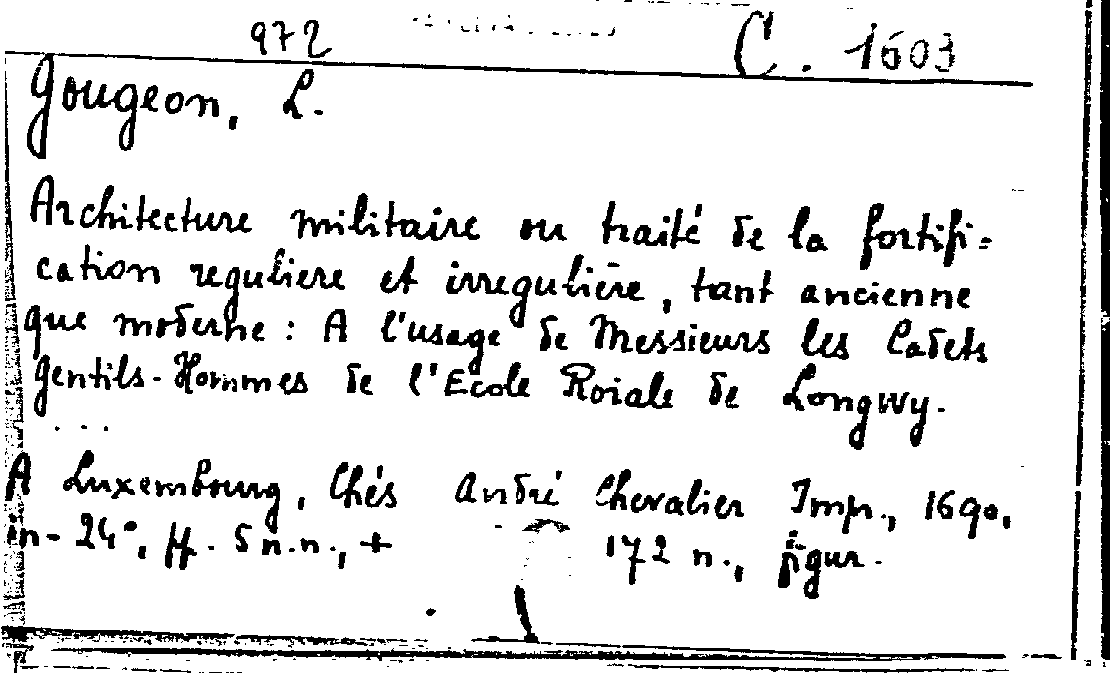 972 C. 1603
Gougeon, L.
Architecture militaire ou traité de la fortifi=
cation reguliere et irregulière, tant ancienne
que moderne : A l'usage de Messieurs les Cadets
Gentils-Hommes de l'Ecole Roiale de Longwy.
...
A Luxembourg, Chés André Chevalier Imp., 1690,
in-24°, ff. 5 n.n., + 172 n., figur.